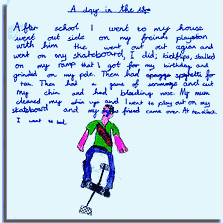 A day in the life
After school I went to my house
went out side on my freinds playstation
with him the went out out agian and
went on my skateboard, I did, kickflips, stalled
on my ramp that I got for my birthday and
grinded on my pole. Then had spaggo spagetti for
tea. Then had a game of scrumage and cut
my chin and had bleeding nose. My mum
cleaned my chin up and I went to play out on my
skateboard and my new friend came over. At
I went to bed.